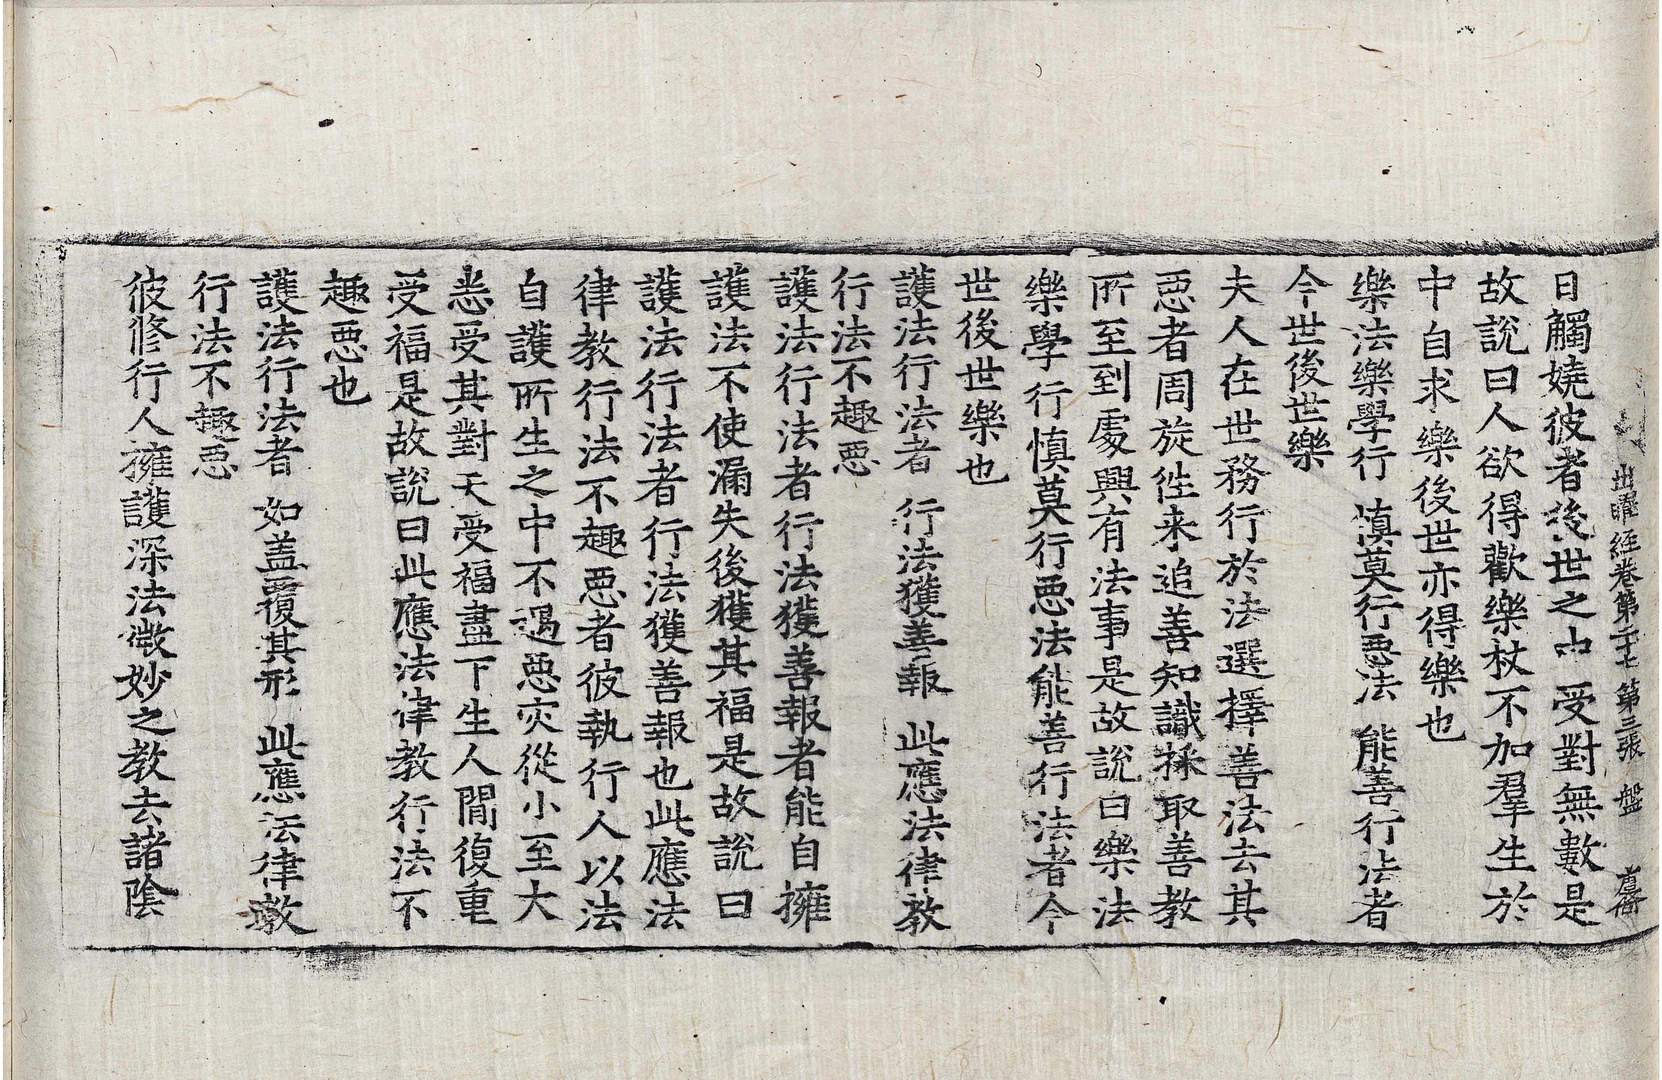 出曜經卷第二十七 第三張 盤
日觸嬈彼者後世之中受對無數是
故説曰人欲得歡樂杖不加羣生於
中自求樂後世亦得樂也
樂法樂學行 慎莫行惡法 能善行法者
今世後世樂
夫人在世務行於法選擇善法去其
惡者周旋徃来追善知識採取善教
所至到處興有法事是故説曰樂法
樂學行慎莫行惡法能善行法者今
世後世樂也
護法行法者 行法獲善報 此應法律教
行法不趣惡
護法行法者行法獲善報者能自擁
護法不使漏失後獲其福是故説曰
護法行法者行法獲善報也此應法
律教行法不趣惡者彼執行人以法
自護所生之中不遇惡灾從小至大
恙受其對天受福盡下生人間復重
受福是故説曰此應法律教行法不
趣惡也
護法行法者 如盖覆其形 此應法律教
行法不趣惡
彼修行人擁護深法微妙之教去諸陰